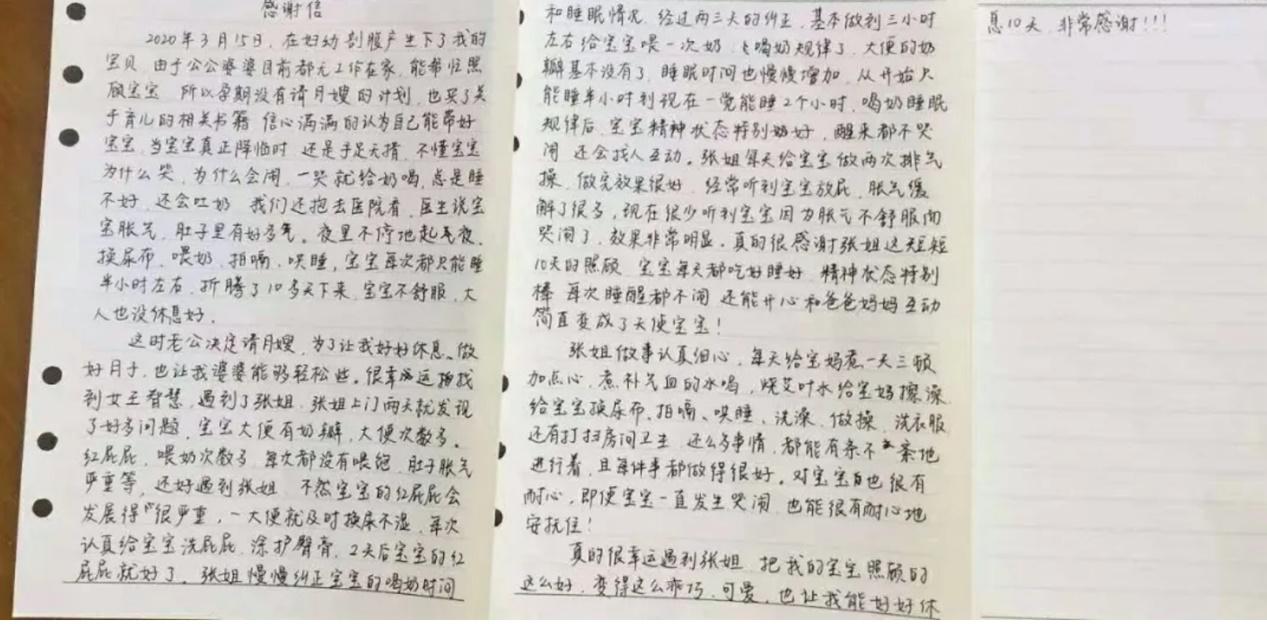 感谢信
2020年3月15日，在妇幼剖腹产生下了我的
宝贝，由于公公婆婆目前都无工作在家，能帮忙照
顾宝宝，所以孕期没有请月嫂的计划，也买了关
于育儿的相关书籍，信心满满的认为自己能带好
宝宝，当宝宝真正降临时，还是手足无措，不懂宝宝
为什么哭，为什么会闹，一哭就给奶喝，总是睡
不好，还会吐奶，我们还抱去医院看，医生说宝
宝胀气，肚子里有好多气。夜里不停地起夜，
换尿布、喂奶、拍嗝、哄睡，宝宝每次都只能睡
半小时左右，折腾了10多天下来，宝宝不舒服，大
人也没休息好。
这时老公决定请月嫂，为了让我好好休息、做
好月子，也让我婆婆能够轻松些。很幸运找
到女王智慧，遇到了张姐，张姐上门两天就发现
了好多问题，宝宝大便有奶瓣，大便次数多。
红屁屁，喂奶次数多，每次都没有喂饱，肚子胀气
严重等，还好遇到张姐，不然宝宝的红屁屁会
发展得很严重，一大便就及时换尿不湿，每次
认真给宝宝洗屁屁，涂护臀膏，2天后宝宝的红
屁屁就好了。张姐慢慢纠正宝宝的喝奶时间
和睡眠情况，经过两三天的纠正，基本做到三小时
左右给宝宝喂一次奶，喝奶规律了，大便的奶
瓣基本没有了，睡眠时间也慢慢增加，从开始只
能睡半小时到现在一觉能睡2个小时，喝奶睡眠
规律后，宝宝精神状态特别好，醒来都不哭
闹，还会找人互动。张姐每天给宝宝做两次排气
操，做完效果很好，经常听到宝宝放屁，胀气缓
解了很多，现在很少听到宝宝因为胀气不舒服而
哭闹了，效果非常明显。真的很感谢张姐这短短
10天的照顾，宝宝每天都吃好睡好，精神状态特别
棒，每次睡醒都不闹，还能开心和爸爸妈妈互动
简直变成了天使宝宝！
张姐做事认真细心，每天给宝妈煮一天三顿
加点心，煮补气血的水喝，烧艾叶水给宝妈擦澡，
给宝宝换尿布、拍嗝、哄睡、洗澡、做操、洗衣服
还有打扫房间卫生，还么多事情，都能有条不紊地
进行着，且每件事都做得很好。对宝宝也很有
耐心，即使宝宝一直发生哭闹，也能很有耐心地
安抚住！
真的很幸运遇到张姐，把我的宝宝照顾的
这么好，变得这么乖巧、可爱，也让我能好好休
息10天，非常感谢！！！